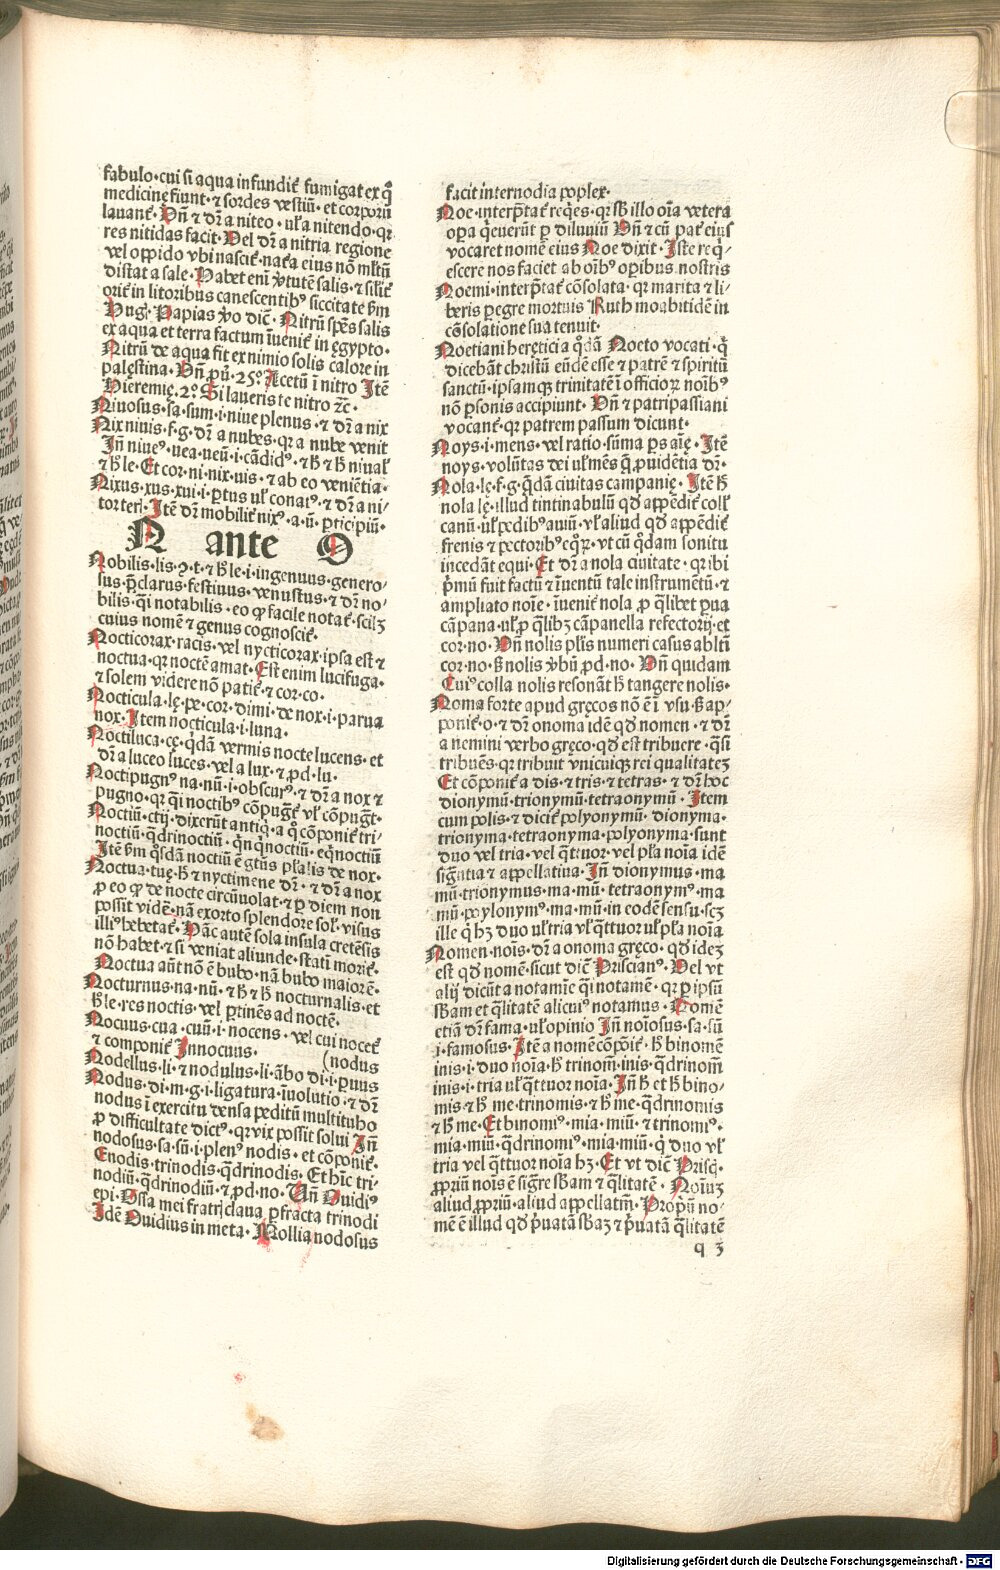 fabulo·cui si aqua infundit᷑ fumigat ex q̊
medicinę fiunt·⁊ sordes vestiũ·et corporũ
lauant᷑·Vñ ⁊ dr̃ a niteo·ul̕a nitendo·qꝛ
res nitidas facit·Vel dr̃ a nitria regione
vel oppido vbi nascit᷑·nat̃a eius nõ ml̕tũ
distat a sale·Habet eni ỽtutẽ salis·⁊ silit᷑
orit᷑ in litoribus canescentibꝰ siccitate ẜm
Hug̕·Papias ỽo dic̃·Nitrũ spẽs salis
ex aqua et terra factum ĩuenit᷑ in ęgypto·
Nitrũ de aqua fit ex nimio solis calore in
palęstina·Vñ ꝓũ·25°·Acetũ ĩ nitro Itẽ
Hieremię·2°·Si laueris te nitro ⁊c̃·
Niuosus·sa·sum·i·niue plenus·⁊ dr̃ a nix
Nix niuis·f·g·dr̃ a nubes·qꝛ a nube venit
Iñ niueꝰ·uea·ueũ·i·cãdidꝰ·⁊ h̵ ⁊ h̵ niual̕
⁊ h̵ le·Et cor·ni·nix·uis·⁊ ab eo veniẽtia·
Nixus·xus·xui·i·ꝑtus ul̕ conatꝰ·⁊ dr̃ a ni/
tor teri·Itẽ dr̃ mobilit᷑ nixꝰ·a·ũ·ꝑticipiũ·
N ante O
Nobilis·lis·ꝯ·t·⁊ h̵ le·i·ingenuus·genero/
sus·p̃clarus·festiuus·venustus·⁊ dr̃ no/
bilis·q̃i notabilis·eo ꝙ facile notat᷑·scilꝫ
cuius nomẽ ⁊ genus cognoscit᷑·
Nocticorax·racis·vel nycticorax·ipsa est ⁊
noctua·qꝛ noctẽ amat·Est enim lucifuga·
⁊ solem videre nõ patit᷑ ⁊ cor·co·
Nocticula·lę·pe·cor·dimi·de nox·i·parua
nox·Item nocticula·i·luna·
Noctiluca·cę·q̃dã vermis nocte lucens·et
dr̃ a luceo luces·vel a lux·⁊ ꝓd·lu·
Noctipugnꝰ na·nũ·i·obscurꝰ·⁊ dr̃ a nox ⁊
pugno·qꝛ q̃i noctibꝰ cõpugt᷑ vl̕ cõpugt̃·
Noctiũ·ctij·dixerũt antiq̕·a q̊ cõponit᷑ tri/
noctiũ·q̃drinoctiũ·q̕nq̕noctiũ·eq̕noctiũ
Itẽ ẜm q̊sdã noctiũ ẽ gt̃us pl̕alis de nox·
Noctua·tuę·h̵ ⁊ nyctimene dr̃·⁊ dr̃ a nox
ꝓ eo ꝙ de nocte circũuolat·⁊ ꝑ diem non
possit videre·nã exorto splendore sol̕·visus
illiꝰ hebetat᷑·Hãc autẽ sola insula cretẽsis
nõ habet·⁊ si veniat aliunde·statĩ morit᷑·
Noctua aũt nõ ẽ bubo·nã bubo maior ẽ·
Nocturnus·na·nũ·⁊ h̵ ⁊ h̵ nocturnalis·et
h̵ le·res noctis·vel ꝑtinẽs ad noctẽ·
Nocuus·cua·cuũ·i·nocens·vel cui nocet᷑
⁊ componit᷑ Innocuus· (nodus
Nodellus·li·⁊ nodulus·li·ãbo di·i·ꝑuus
Nodus·di·m·g·i·ligatura·ĩuolutio·⁊ dr̃
nodus ĩ exercitu densa peditũ multitudo
ꝓ difficultate dictꝰ·qꝛ vix possit solui Iñ
nodosus·sa·sũ·i·plenꝰ nodis·et cõponit᷑·
Enodis·trinodis·q̃drinodis·Et hĩc tri/
nodiũ·q̃drinodiũ·⁊ ꝓd·no·Vñ Ouidiꝰ
epi·Ossa mei fratris claua ꝑfracta trinodi
Idẽ Ouidius in meta·Mollia nodosus
facit internodia poplex·
Noe·interp̃tat᷑ req̕es·qꝛ sb̵ illo oĩa vetera
oꝑa q̕euerũt ꝑ diluuiũ Vñ ⁊ cũ pat᷑ eius
vocaret nomẽ eius Noe dixit·Iste req̕/
escere nos faciet ab oĩbꝰ oꝑibus nostris
Noemi·interp̃tat᷑ cõsolata·qꝛ marita ⁊ li/
beris ꝑegre mortuis Ruth moabitidẽ in
cõsolatione sua tenuit·
Noetiani heręticia q̊dã Noeto vocati·q̕
dicebãt christũ eũdẽ esse ⁊ patrẽ ⁊ spiritũ
sanctũ·ipsamqꝫ trinitatẽ ĩ officioꝝ noĩbꝰ
nõ ꝑsonis accipiunt·Vñ ⁊ patripassiani
vocant᷑·qꝛ patrem passum dicunt·
Noys·i·mens·vel ratio·sũma ꝑs aĩę·Itẽ
noys·volũtas dei ul̕ mẽs q̃ ꝓuidẽtia dr̃·
Nola·lę·f·g·q̃dã ciuitas campanię·Itẽ h̵
nola lę·illud tintinabulũ qđ appẽdit᷑ coll̕
canũ·ul̕ pedibꝰ auiũ·vl̕ aliud qđ appẽdit᷑
frenis ⁊ pectoribꝰ eq̊ꝝ·vt cũ q̊dam sonitu
incedãt equi·Et dr̃ a nola ciuitate·qꝛ ibi
p̕mũ fuit factũ ⁊ ĩuentũ tale instrumẽtũ·⁊
ampliato noĩe·ĩuenit᷑ nola ꝓ q̃libet ꝑua
cãpana·ul̕ ꝓ q̃libꝫ cãpanella refectorij·et
cor·no·Vñ nolis plĩs numeri casus ablt̃i
cor·no·ẞ nolis ỽbũ ꝓd·no·Vñ quidam
Cuiꝰ colla nolis resonãt h̵ tangere nolis·
Noma forte apud gręcos nõ ẽ ĩ vsu·ẞ ap/
ponit᷑·o·⁊ dr̃ onoma idẽ qđ nomen·⁊ dr̃
a nemini verbo gręco·qđ est tribuere·q̃si
tribuẽs·qꝛ tribuit vnicuiqꝫ rei qualitatẽ
Et cõponit᷑ a dis·⁊ tris·⁊ tetras·⁊ dr̃ hoc
dionymũ·trionymũ·tetraonymũ·Item
cum polis·⁊ dicit᷑ polyonymũ·dionyma·
trionyma·tetraonyma·polyonyma·sunt
duo vel tria·vel q̃ttuor·vel pl̃a noĩa idẽ
signĩtia ⁊ appellatiua·Iñ dionymus·ma
mũ·trionymus·ma·mũ·tetraonymꝰ·ma
mũ·poylonymꝰ·ma·mũ·in eodẽ sensu·scꝫ
ille q̕ hꝫ duo ul̕ tria vl̕ q̃ttuor ul̕ pl̃a noĩa
Nomen·noĩs·dr̃ a onoma gręco·qđ idẽ
est qđ nomẽ·sicut dic̃ Priscianꝰ·Vel vt
alij dicũt a notamĩe q̃i notamẽ·qꝛ ꝑ ipsũ
sb̃am et q̃litatẽ alicuiꝰ notamus·Nomẽ
etiã dr̃ fama·ul̕ opinio Iñ noĩosus·sa·sũ
·i·famosus·Itẽ a nomẽ cõpõit᷑·h̵ binomẽ
inis·i·duo noĩa·h̵ trinom̃·inis·q̃drinom̃
inis·i·tria ul̕ q̃ttuor noĩa·Iñ h̵ et h̵ bino/
mis·⁊ h̵ me·trinomis·⁊ h̵ me·q̃drinomis
⁊ h̵ me·Et binomiꝰ·mia·miũ·⁊ trinomiꝰ·
mia·miũ·q̃drinomiꝰ·mia·miũ·q̕ duo vl̕
tria vel q̃ttuor noĩa hꝫ·Et vt dic̃ Prisꝗ·
ꝓpriũ noĩs ẽ sig̃re sb̃am ⁊ q̃litatẽ·Noĩuꝫ
aliud ꝓpriũ·aliud appellatm̃·Prop̕ũ no/
mẽ ẽ illud qđ p̕uatã sb̃aꝫ ⁊ p̕uatã q̃litatẽ
q 3
Digitalisierung gefördert durch die Deutsche Forschungsgemeinschaft · DFG